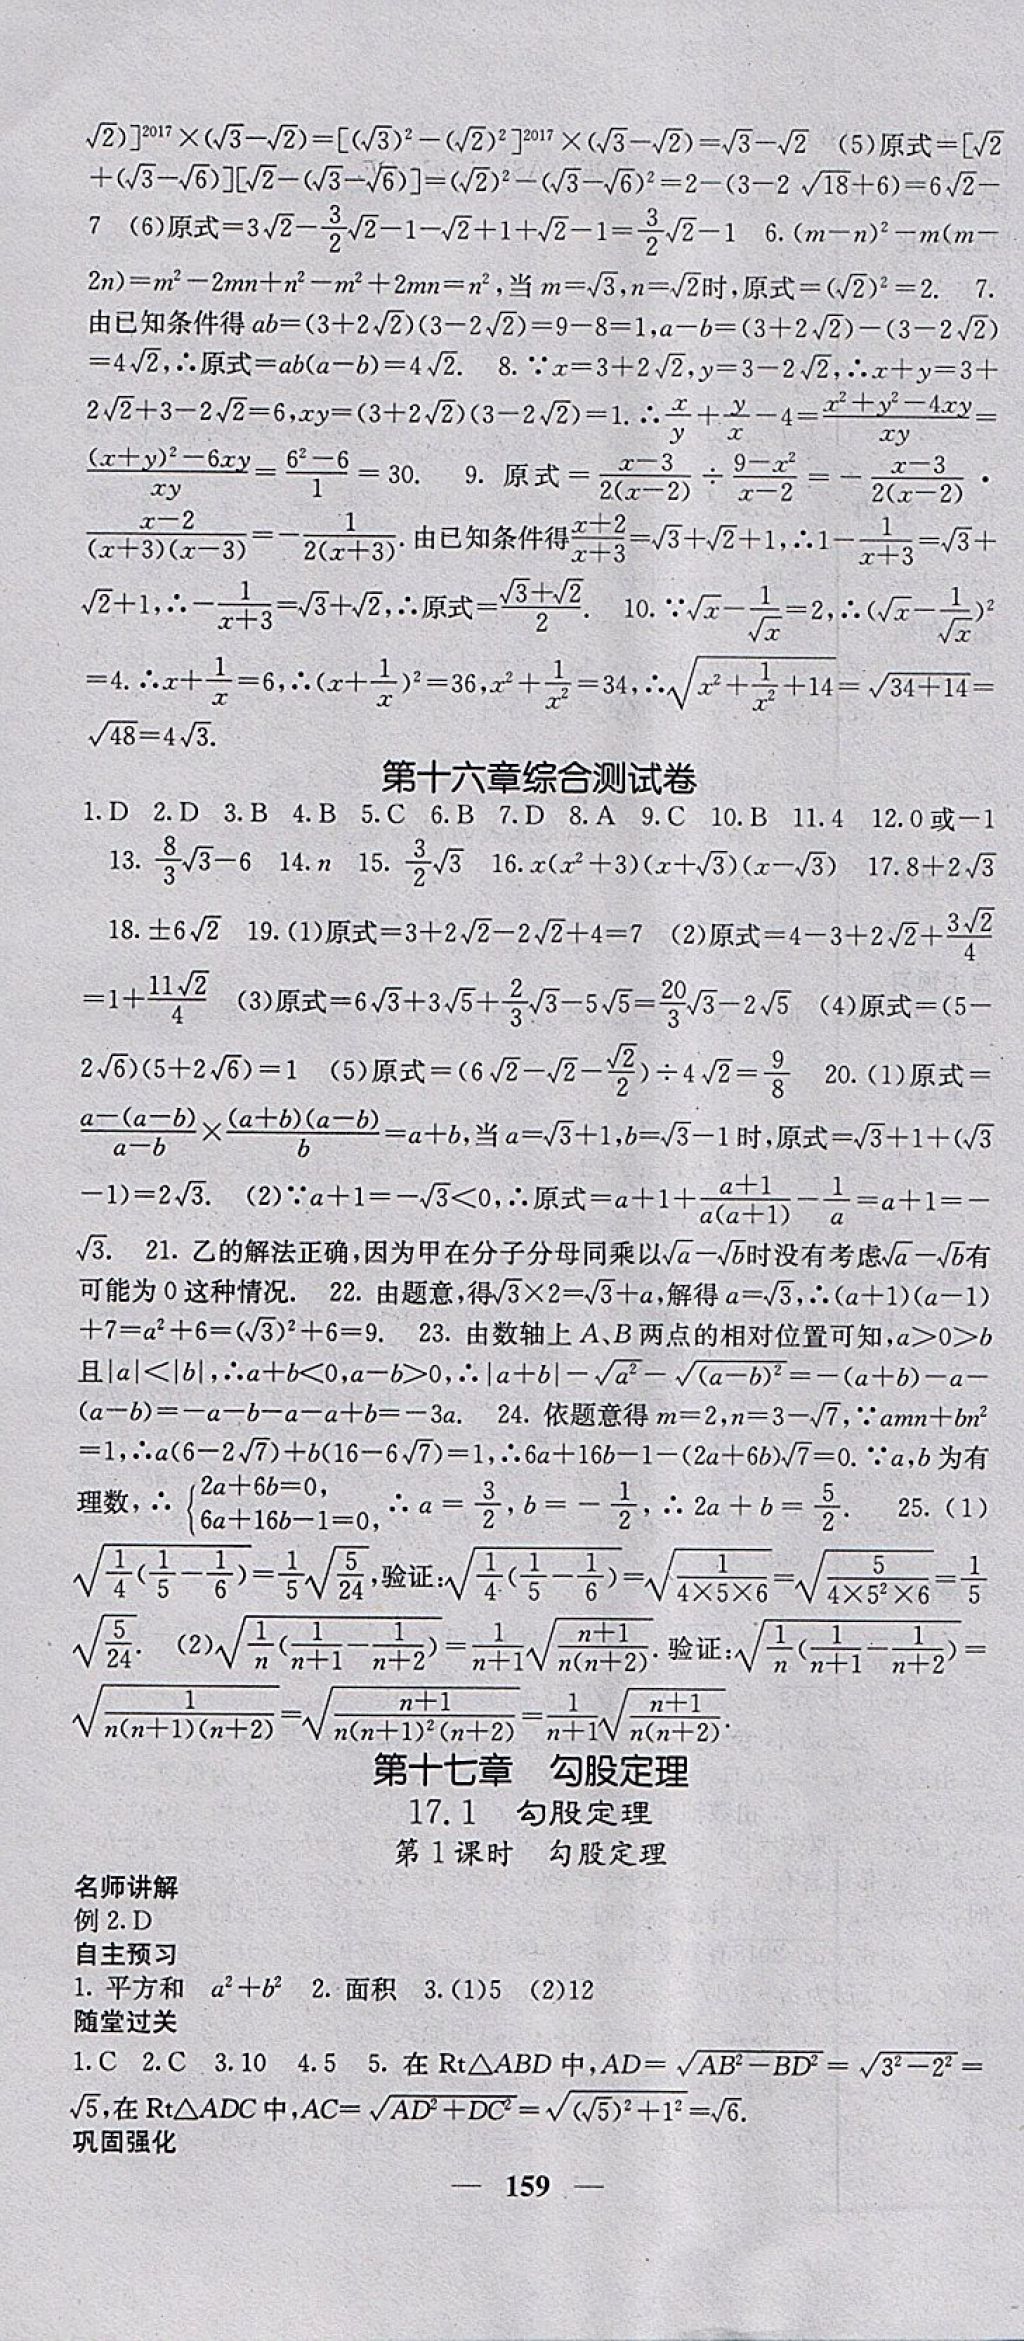 √2)]²⁰¹⁷×(√3−√2)=[(√3)²−(√2)²]²⁰¹⁷×(√3−√2)=√3−√2 (5)原式=[√2
+(√3−√6)][√2−(√3−√6)]=(√2)²−(√3−√6)²=2−(3−2√18+6)=6√2−
7 (6)原式=3√2−3/2√2−1−√2+1+√2−1=3/2√2−1 6.(m−n)²−m(m−
2n)=m²−2mn+n²−m²+2mn=n²,当m=√3,n=√2时,原式=(√2)²=2. 7.
由已知条件得ab=(3+2√2)(3−2√2)=9−8=1,a−b=(3+2√2)−(3−2√2)
=4√2,∴原式=ab(a−b)=4√2. 8.∵x=3+2√2,y=3−2√2,∴x+y=3+
2√2+3−2√2=6,xy=(3+2√2)(3−2√2)=1.∴x/y+y/x−4=(x²+y²−4xy)/xy=
((x+y)²−6xy)/xy=(6²−6)/1=30. 9.原式=(x−3)/(2(x−2))÷(9−x²)/(x−2)=−(x−3)/(2(x−2))·
(x−2)/((x+3)(x−3))=−1/(2(x+3)).由已知条件得(x+2)/(x+3)=√3+√2+1,∴1−1/(x+3)=√3+
√2+1,∴−1/(x+3)=√3+√2,∴原式=(√3+√2)/2. 10.∵√x−1/√x=2,∴(√x−1/√x)²
=4.∴x+1/x=6,∴(x+1/x)²=36,x²+1/x²=34,∴√(x²+1/x²+14)=√(34+14)=
√48=4√3.
第十六章综合测试卷
1.D 2.D 3.B 4.B 5.C 6.B 7.D 8.A 9.C 10.B 11.4 12.0或−1
13.8/3√3−6 14.n 15.3/2√3 16.x(x²+3)(x+√3)(x−√3) 17.8+2√3
18.±6√2 19.(1)原式=3+2√2−2√2+4=7 (2)原式=4−3+2√2+3√2/4
=1+11√2/4 (3)原式=6√3+3√5+2/3√3−5√5=20/3√3−2√5 (4)原式=(5−
2√6)(5+2√6)=1 (5)原式=(6√2−√2−√2/2)÷4√2=9/8 20.(1)原式=
(a−(a−b))/(a−b)×((a+b)(a−b))/b=a+b,当a=√3+1,b=√3−1时,原式=√3+1+(√3
−1)=2√3. (2)∵a+1=−√3<0,∴原式=a+1+(a+1)/(a(a+1))−1/a=a+1=−
√3. 21.乙的解法正确,因为甲在分子分母同乘以√a−√b时没有考虑√a−√b有
可能为0这种情况. 22.由题意,得√3×2=√3+a,解得a=√3,∴(a+1)(a−1)
+7=a²+6=(√3)²+6=9. 23.由数轴上A、B两点的相对位置可知,a>0>b
且|a|<|b|,∴a+b<0,a−b>0,∴|a+b|−√(a²)−√((a−b)²)=−(a+b)−a−
(a−b)=−a−b−a−a+b=−3a. 24.依题意得m=2,n=3−√7,∵amn+bn²
=1,∴a(6−2√7)+b(16−6√7)=1,∴6a+16b−1−(2a+6b)√7=0.∵a,b为有
理数,∴{2a+6b=0, 6a+16b−1=0, ∴a=3/2,b=−1/2,∴2a+b=5/2. 25.(1)
√(1/4(1/5−1/6))=1/5√(5/24),验证:√(1/4(1/5−1/6))=√(1/(4×5×6))=√(5/(4×5²×6))=1/5
√(5/24). (2)√(1/n(1/(n+1)−1/(n+2)))=1/(n+1)√((n+1)/(n(n+2))).验证:√(1/n(1/(n+1)−1/(n+2)))=
√(1/(n(n+1)(n+2)))=√((n+1)/(n(n+1)²(n+2)))=1/(n+1)√((n+1)/(n(n+2))).
第十七章 勾股定理
17.1 勾股定理
第1课时 勾股定理
名师讲解
例2.D
自主预习
1.平方和 a²+b² 2.面积 3.(1)5 (2)12
随堂过关
1.C 2.C 3.10 4.5 5.在Rt△ABD中,AD=√(AB²−BD²)=√(3²−2²)=
√5,在Rt△ADC中,AC=√(AD²+DC²)=√((√5)²+1²)=√6.
巩固强化
— 159 —